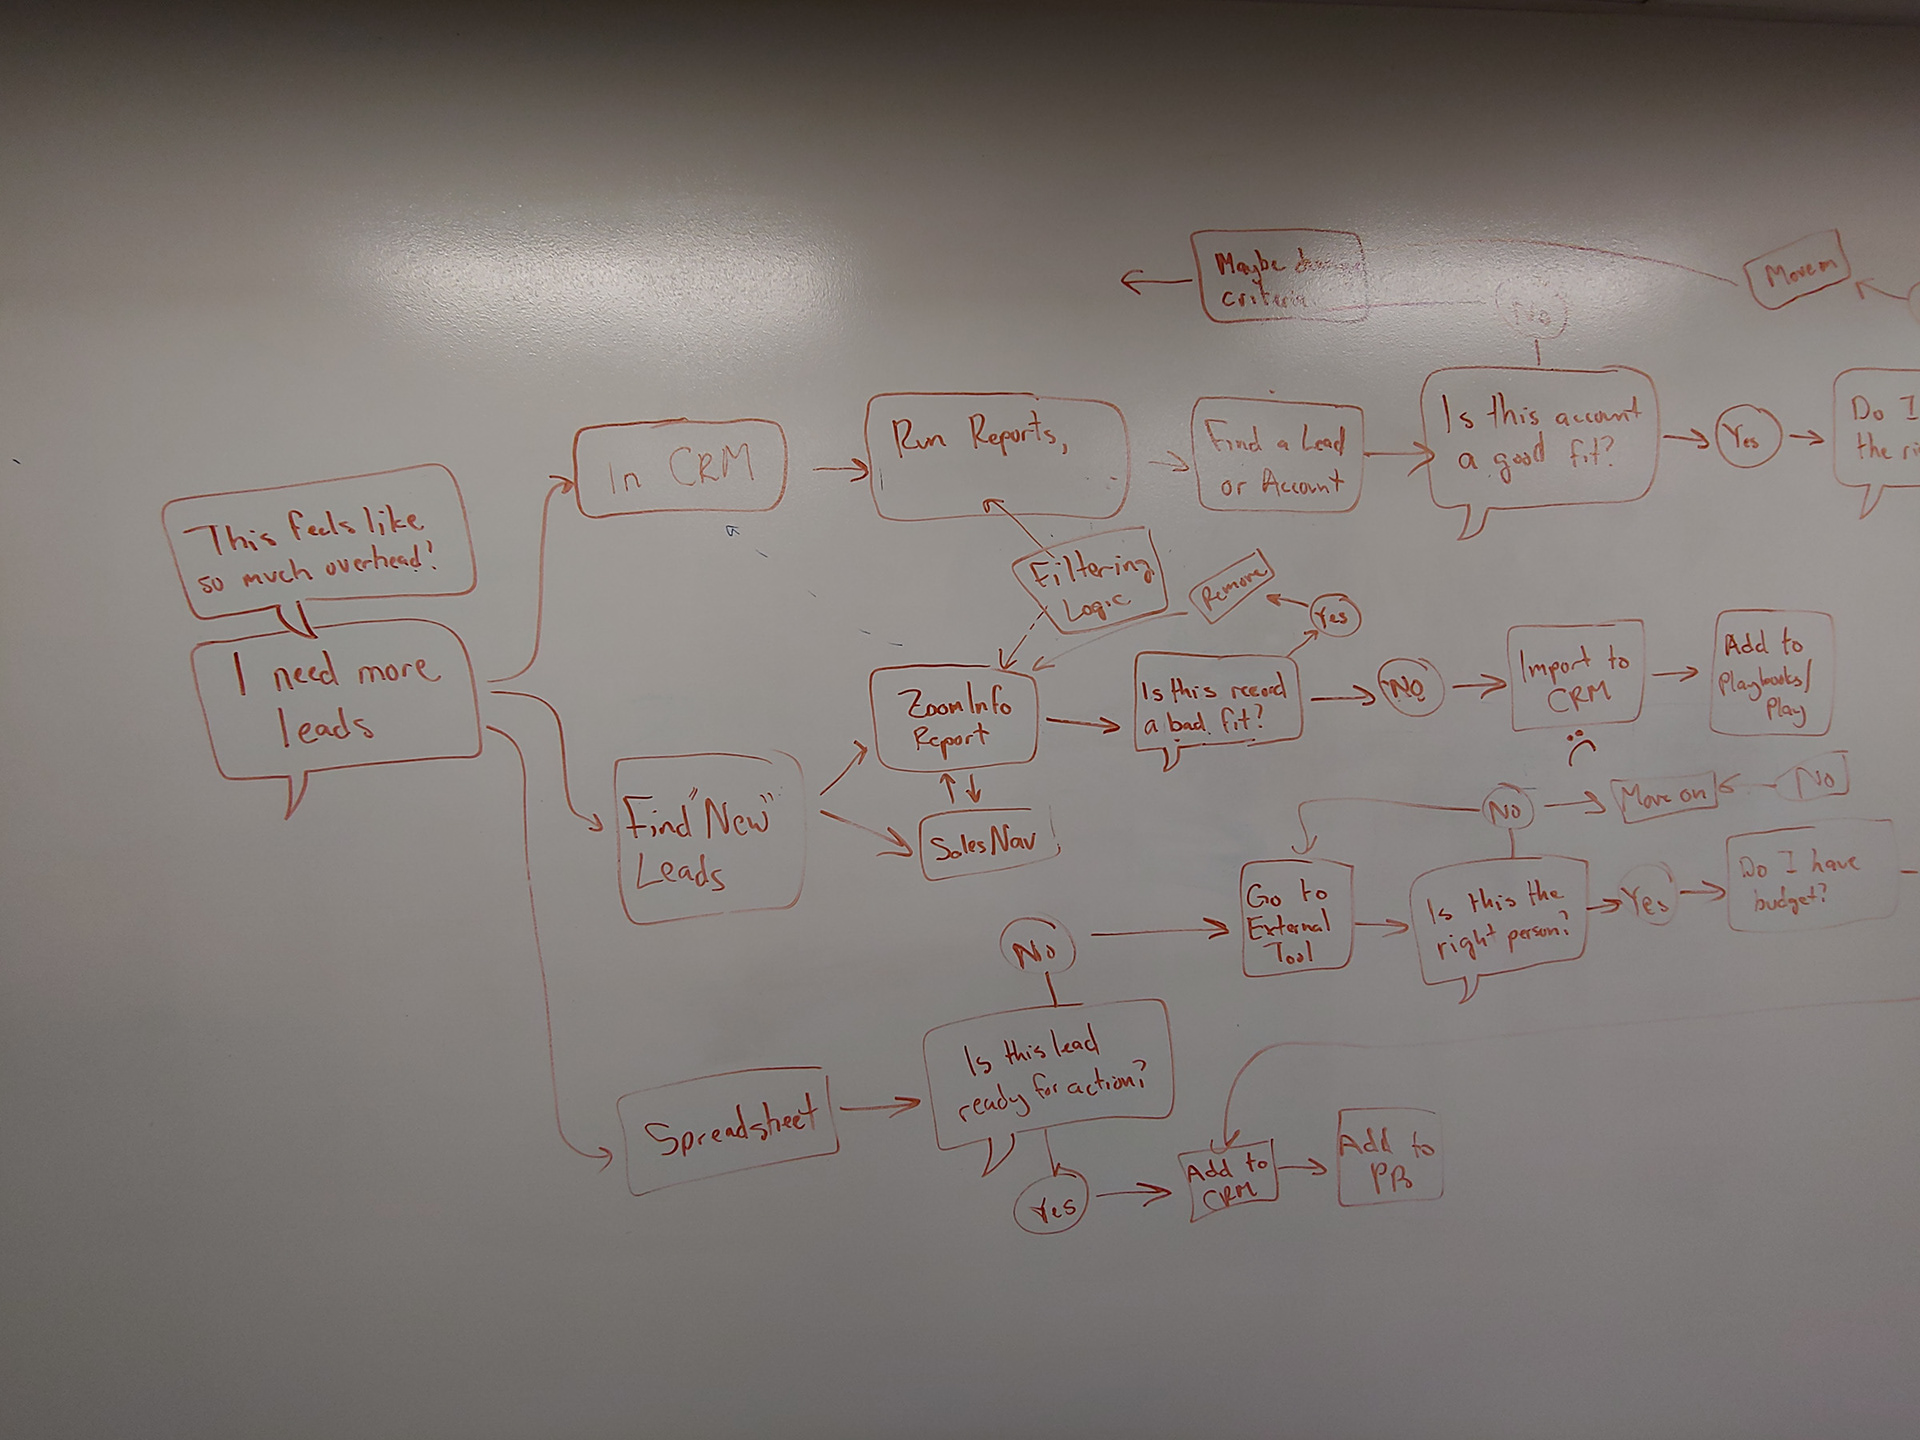 Maybe
criteria
Move on
No
This feels like
so much overhead!
I need more
leads
In CRM
Run Reports,
Find a Lead
or Account
Is this account
a good fit?
Yes
Do I
the ri
Filtering
Logic
Remove
Yes
ZoomInfo
Report
Is this record
a bad fit?
No
Import to
CRM
Add to
Playbooks/
Play
Find "New"
Leads
Sales Nav
No
Move on
No
Go to
External
Tool
Is this the
right person?
Yes
Do I have
budget?
No
Spreadsheet
Is this lead
ready for action?
Yes
Add to
CRM
Add to
PB